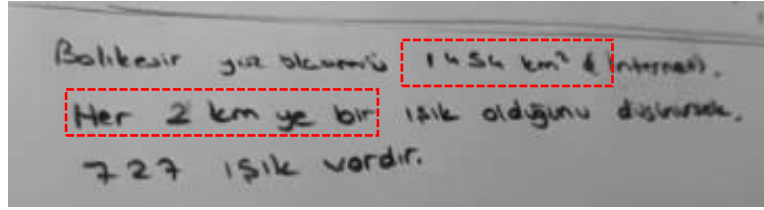 Balıkesir yüz ölçümü 1454 km² (internet).
Her 2 km ye bir ışık olduğunu düşünürsek.
727 ışık vardır.